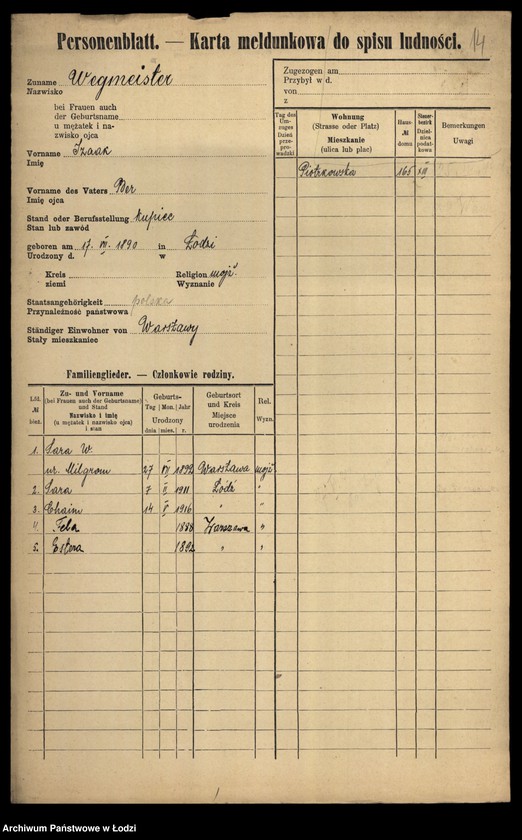 Personenblatt. — Karta meldunkowa do spisu ludności. 14
Zuname Wegmeister
Nazwisko
bei Frauen auch
der Geburtsname
u mężatek i na-
zwisko ojca
Vorname Izaak
Imię
Vorname des Vaters Ber
Imię ojca
Stand oder Berufsstellung kupiec
Stan lub zawód
geboren am 17 VII 1890 in Łodzi
Urodzony d. w
Kreis Religion mojż.
ziemi Wyznanie
Staatsangehörigkeit polska
Przynależność państwowa
Ständiger Einwohner von Warszawy
Stały mieszkaniec
Zugezogen am
Przybył w d.
von
z
Tag des Um-zuges Dzień prze-prowadzki
Wohnung
(Strasse oder Platz)
Mieszkanie
(ulica lub plac)
Haus-
№
domu
Steuer-
bezirk
Dziel-
nica
podat-
kowa
Bemerkungen
Uwagi
Piotrkowska 165 XIII
Familienglieder. — Członkowie rodziny.
Lfd.
№
bież.
Zu- und Vorname
(bei Frauen auch der Geburtsname)
und Stand
Nazwisko i imię
(u mężatek i nazwisko ojca)
i stan
Geburts-
Tag Mon. Jahr
Urodzony
dnia mies. r.
Geburtsort
und Kreis
Miejsce
urodzenia
Rel.
Wyzn.
1. Sara W.
ur. Milgrom 27 1892 Warszawa mojż.
2. Sara 7 II 1911 Łódź "
3. Chaim 14 V 1916 " "
4. Fela 1888 Warszawa "
5. Estera 1892 " "
Archiwum Państwowe w Łodzi